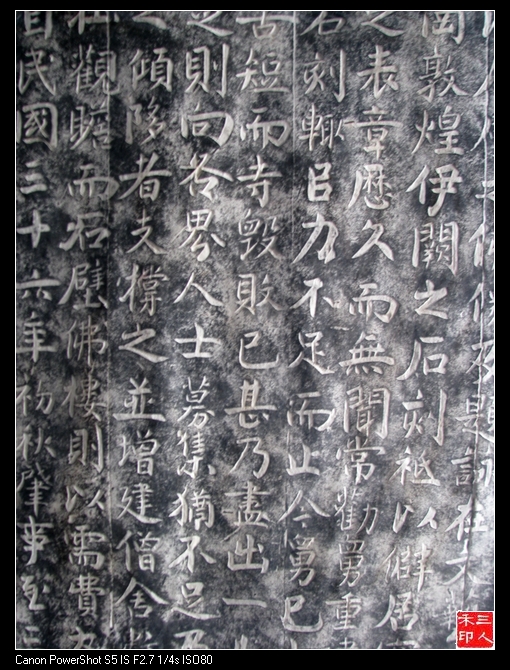 夜題詠在
岡敦煌伊闕之石刻祗以僻居
之表章歷久而無聞常勸勇重
石刻輒臣力不足而止今勇已
苦短而寺毀敗已甚乃盡出一
則向各界人士募集猶不足
傾陊者支撐之並增建僧舍
觀瞻而石壁佛樓則以需費
自民國三十六年初秋肇事至三
Canon PowerShot S5 IS F2.7 1/4s ISO80
三人禾印